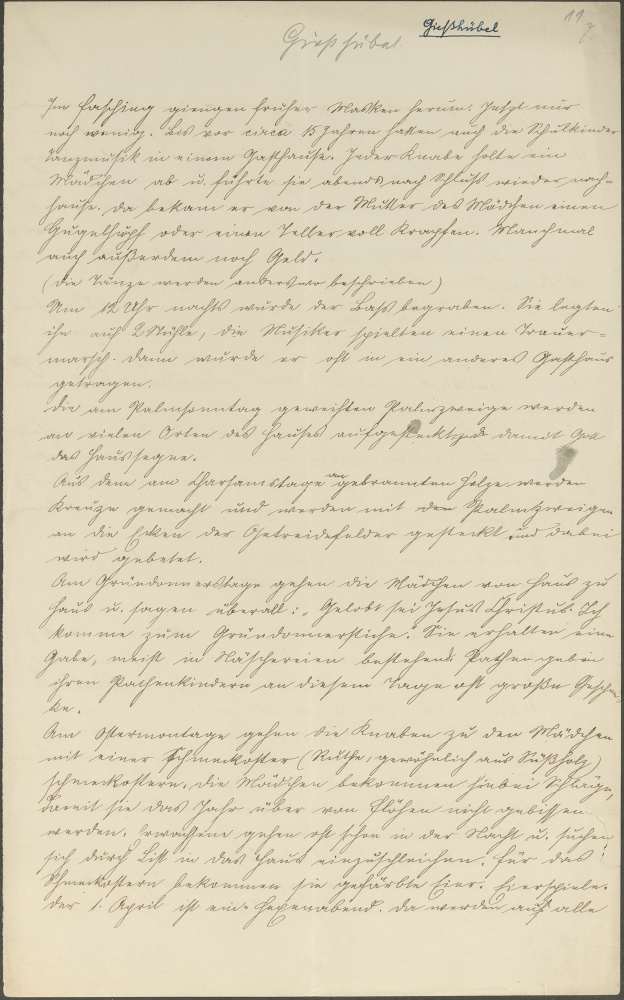 Gießhübel Gießhübel 11
7
Im Fasching giengen früher Masken herum. Jetzt nur
noch wenig. Bis vor circa 15 Jahren hatten auch die Schulkinder
Tanzmusik in einem Gasthause. Jeder Knabe holte ein
Mädchen ab u. führte sie abends nach Schluß wieder nach-
hause. Da bekam er von der Mutter des Mädchen einen
Gugelhupf oder einen Teller voll Krapfen. Manchmal
auch außerdem noch Geld.
(Die Tänze werden anderswo beschrieben)
Um 12 Uhr nachts wurde der Bass begraben. Sie legten
ihn auf 2 Stühle, die Musiker spielten einen Trauer=
marsch. Dann wurde er oft in ein anderes Gasthaus
getragen.
Die am Palmsonntag geweihten Palmzweige werden
an vielen Orten des Hauses aufgesteckt damit Gott
das Haus segne.
Aus dem am Charsamstage angebrannten Holze werden
Kreuze gemacht und werden mit den Palmzweigen
an die Ecken der Getreidefelder gesteckt und dabei
wird gebetet.
Am Gründonnerstage gehen die Mädchen von Haus zu
Haus u. sagen überall: „Gelobt sei Jesus Christus. Ich
komme zum Gründonnerstiche." Sie erhalten eine
Gabe, meist in Näschereien bestehend. Pathen geben
ihren Pathenkindern an diesem Tage oft große Geschen-
ke.
Am Ostermontage gehen die Knaben zu den Mädchen
mit einer Schmeckoster (Ruthe, gewöhnlich aus Süßholz)
schmeckostern. Die Mädchen bekommen hiebei Schläge,
damit sie das Jahr über von Flöhen nicht gebissen
werden. Erwachsene gehen oft schon in der Nacht u. suchen
sich durch List in das Haus einzuschleichen. Für das
Schmeckostern bekommen sie gefärbte Eier. Eierspiele.
Der 1. April ist ein Hexenabend. Da werden auf alle